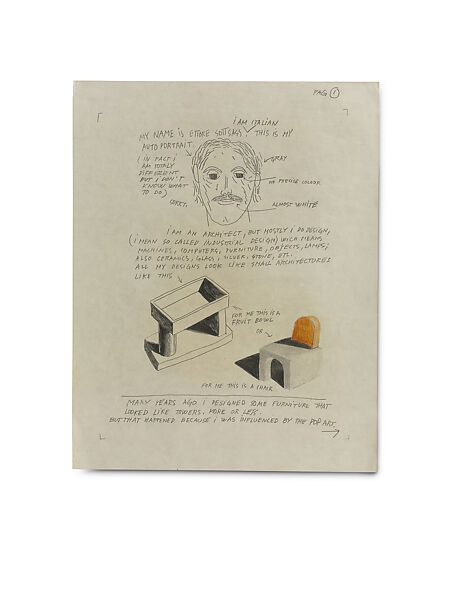 PAG 1
I AM ITALIAN
MY NAME IS ETTORE SOTTSASS THIS IS MY
AUTOPORTRAIT.
(IN FACT I
AM TOTALY
DIFFERENT
BUT I DON'T
KNOW WHAT
TO DO)
SORRY.
GRAY
NO PRECISE COLOUR
ALMOST WHITE
I AM AN ARCHITECT, BUT MOSTLY I DO DESIGN,
(I MEAN SO CALLED INDUSTRIAL DESIGN) WICH MEANS
MACHINES, COMPUTERS, FURNITURE, OBJECTS, LAMPS,
ALSO CERAMICS, GLASS, SILVER, STONE, ETC.
ALL MY DESIGNS LOOK LIKE SMALL ARCHITECTURES
LIKE THIS
FOR ME THIS IS A
FRUIT BOWL
OR
FOR ME THIS IS A CHAIR
MANY YEARS AGO I DESIGNED SOME FURNITURE THAT
LOOKED LIKE TOWERS. MORE OR LESS.
BUT THAT HAPPENED BECAUSE I WAS INFLUENCED BY THE POP ART.